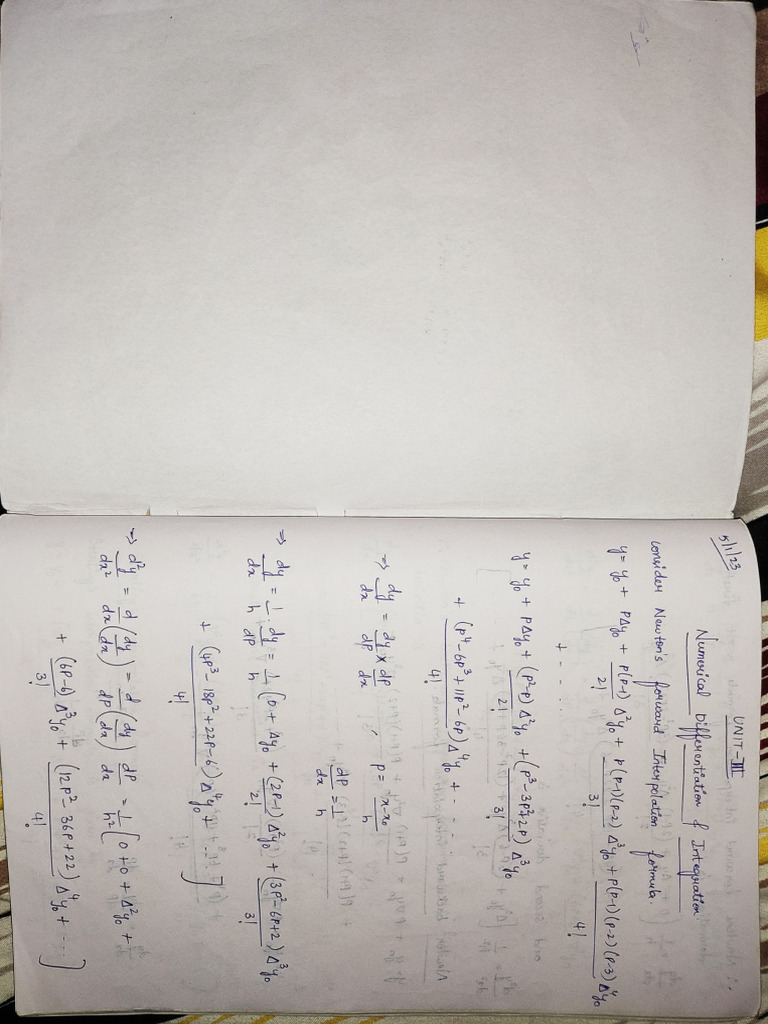 5/1/23
UNIT-III
Numerical Differentiation & Integration
consider Newton's forward Interpolation formula.
y = y₀ + PΔy₀ + P(P-1)/2! Δ²y₀ + P(P-1)(P-2)/3! Δ³y₀ + P(P-1)(P-2)(P-3)/4! Δ⁴y₀
+ - - - ...
y = y₀ + PΔy₀ + (P²-P)/2! Δ²y₀ + (P³-3P²+2P)/3! Δ³y₀
+ (P⁴-6P³+11P²-6P)/4! Δ⁴y₀ + - - - -
⇒ dy/dx = dy/dP × dP/dx , P = x-x₀/h
dP/dx = 1/h
⇒ dy/dx = 1/h · dy/dP = 1/h [0 + Δy₀ + (2P-1)/2! Δ²y₀ + (3P²-6P+2)/3! Δ³y₀
+ (4P³-18P²+22P-6)/4! Δ⁴y₀ + - - - ]
⇒ d²y/dx² = d/dx (dy/dx) = d/dP (dy/dx) dP/dx = 1/h² [0+0+Δ²y₀ +
+ (6P-6)/3! Δ³y₀ + (12P²-36P+22)/4! Δ⁴y₀ + ---- ]